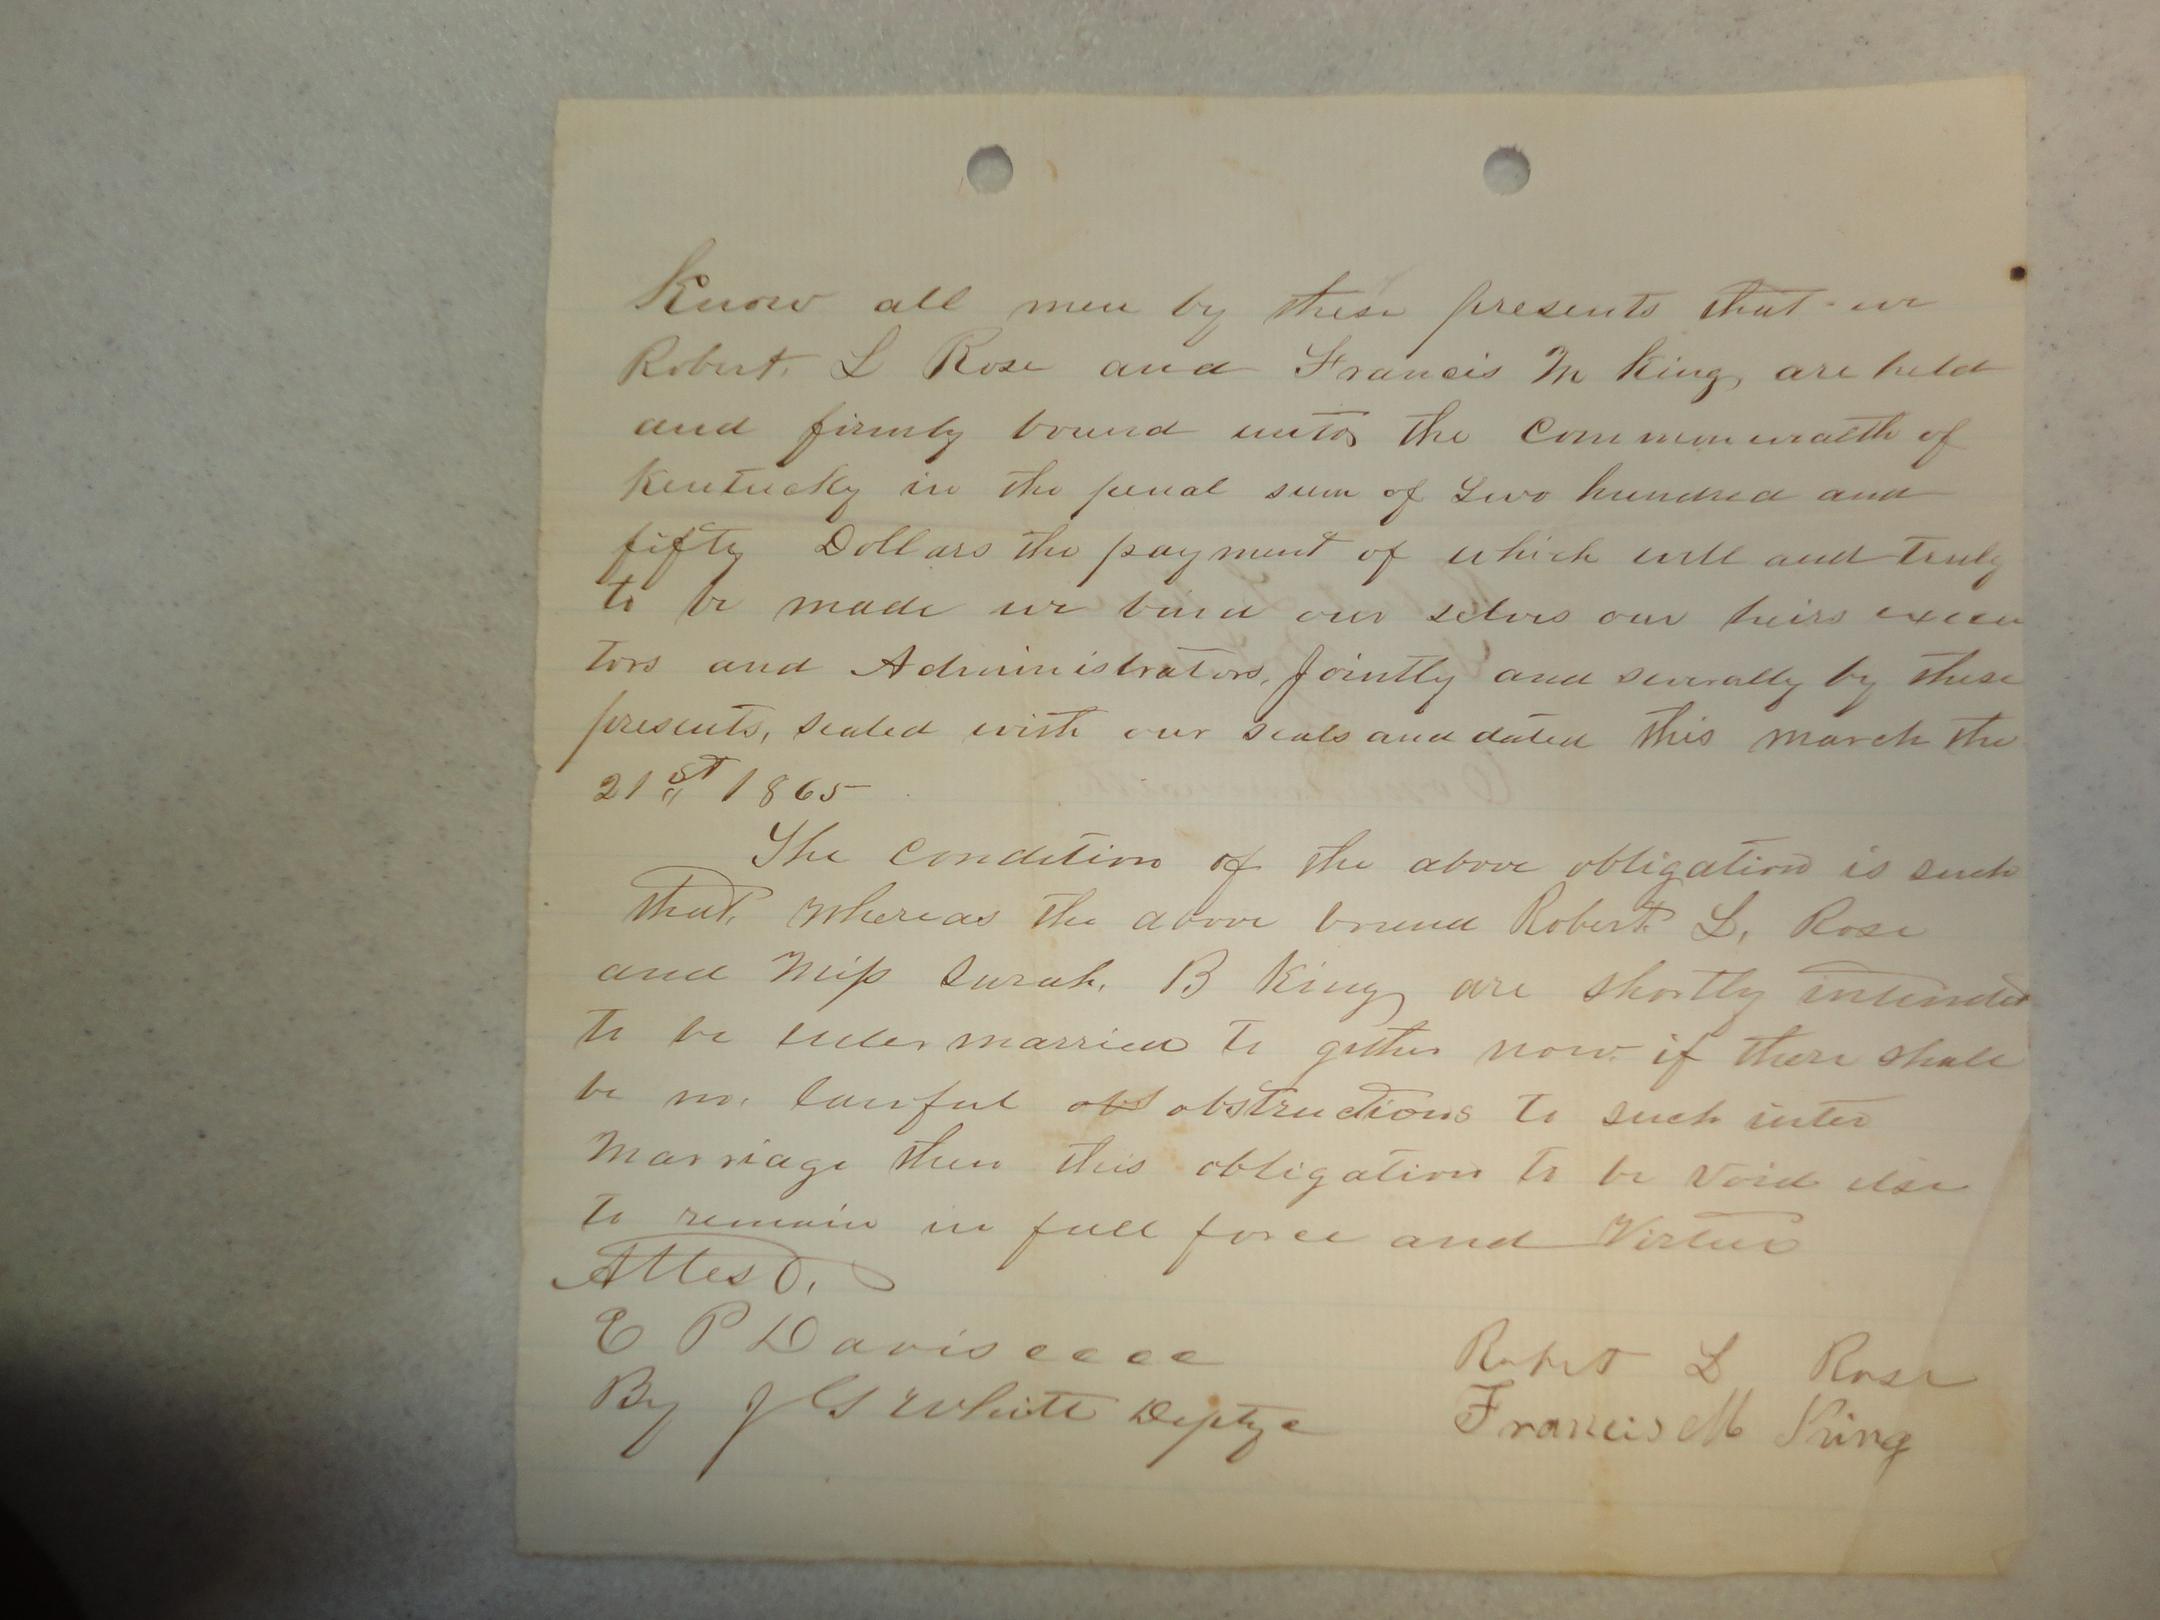 Know all men by these presents that we
Robert L Rose and Francis M King, are held
and firmly bound unto the Commonwealth of
Kentucky in the penal sum of Two hundred and
fifty Dollars the payment of which well and truly
to be made we bind our selves our heirs execu
tors and Administrators, Jointly and severally by these
presents, sealed with our seals and dated this march the
21st 1865
The condition of the above obligation is such
that, whereas the above bound Robert L, Rose
and Miss Sarah, B King are shortly intended
to be intermarried to gether now if there shall
be no, lawful obs obstructions to such inter
Marriage then this obligation to be Void else
to remain in full force and Virtue
Attest,
E P Davis cccc
By J G White Depty c
Robert L Rose
Francis M King